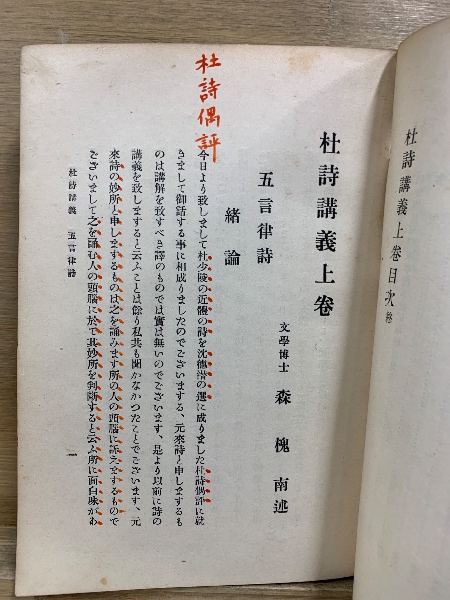 杜詩講義上卷目次 終
杜詩講義上卷
文學博士 森槐南述
五言律詩
緒論
杜詩偶評
今日より致しまして杜少陵の近體の詩を沈德潛の選に成りました杜詩偶評に就
きまして御話する事に相成りましたのでございます、元來詩と申しまするも
のは講解を致すべき譯のものでは實は無いのでございます、是より以前に詩の
講義を致しますると云ふことは餘り私共も聞かなかつたことでございます、元
來詩の妙所と申しまするものは之を誦みます所の人の頭腦に訴えまするもので
ございまして之を誦む人の頭腦に於て其妙所を判斷すると云ふ所に面白味があ
杜詩講義 五言律詩
一